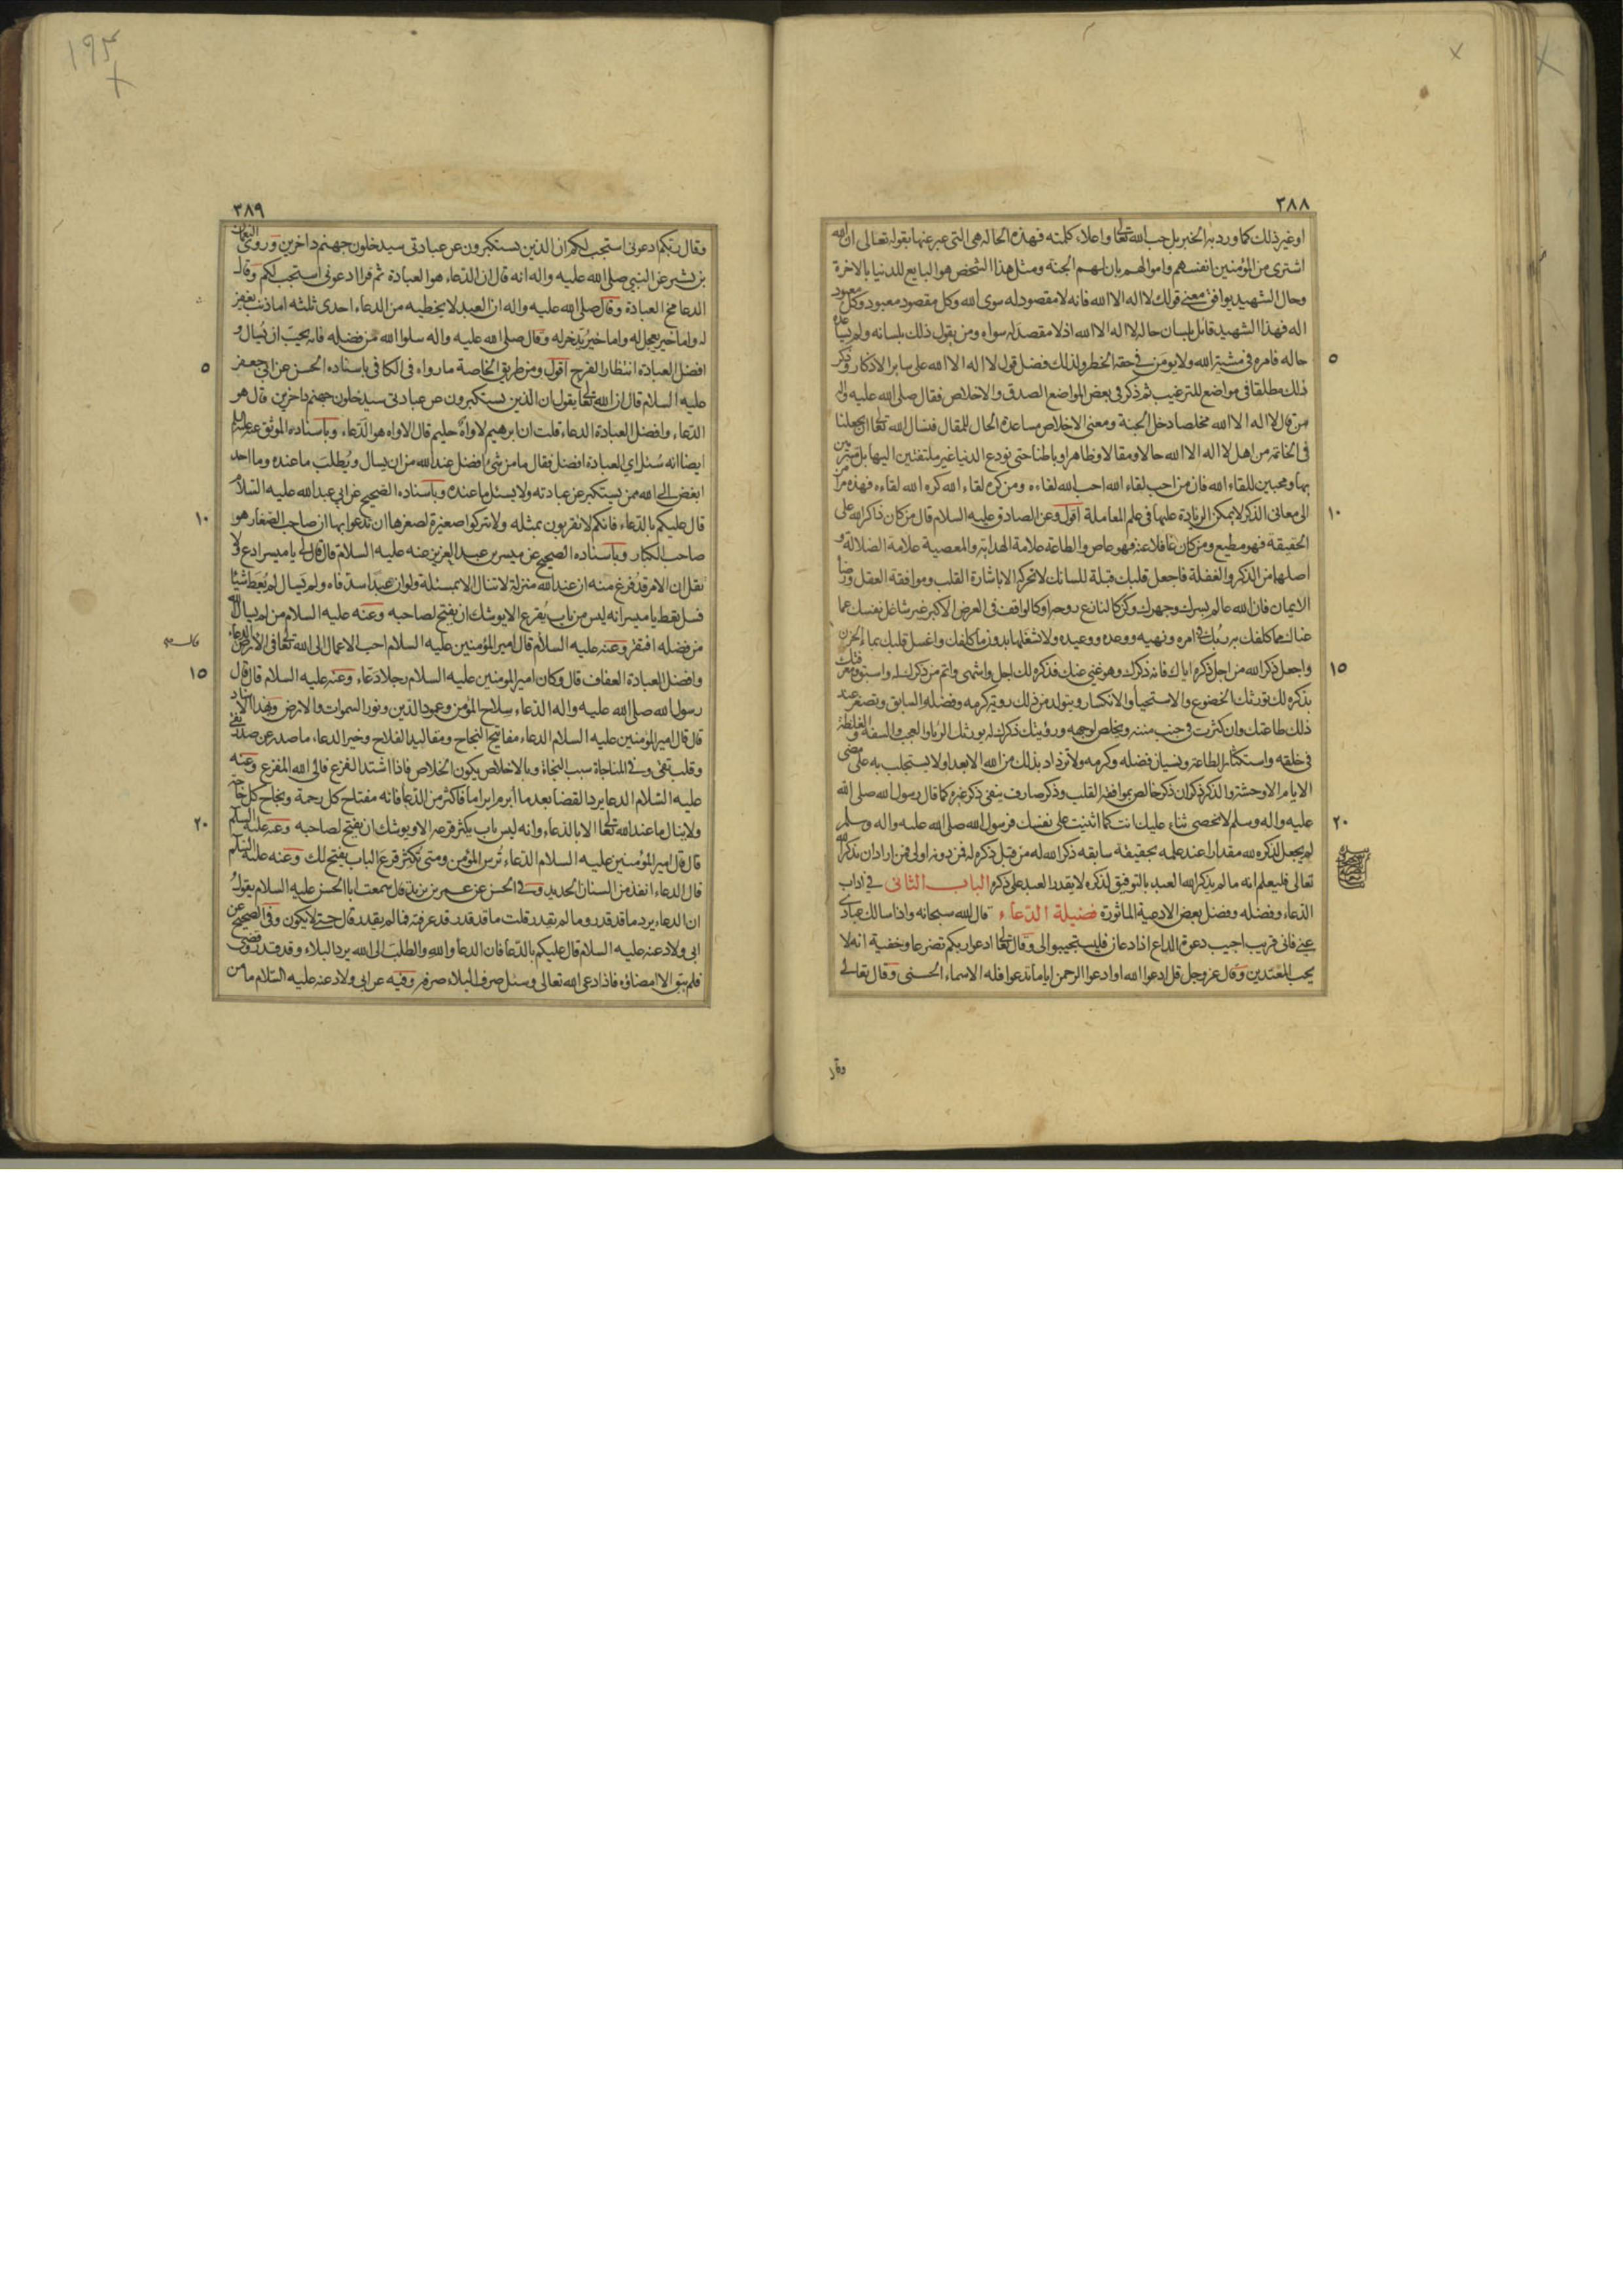 ٣٨٨
او غير ذلك كما ورد به الخبر بل حب الله تعا واعلاء كلمته فهذه الحالة هي التي عبر عنها بقوله تعالى ان الله
اشترى من المؤمنين انفسهم واموالهم بان لهم الجنة ومثل هذا الشخص هو البايع للدنيا بالاخرة
وحال الشهيد يوافق معنى قولك لا اله الا الله فانه لا مقصود له سوى الله وكل مقصود معبود وكل معبود
اله فهذا الشهيد قايل بلسان حاله لا اله الا الله اذ لا مقصد له سواه ومن يقول ذلك بلسانه ولم يساعده
حاله فامره في مشية الله ولا يومن في حقه الخطر ولذلك فضل قول لا اله الا الله على ساير الاذكار وذكر
ذلك مطلقا في مواضع للترغيب ثم ذكر في بعض المواضع الصدق والاخلاص فقال صلى الله عليه واله
من قال لا اله الا الله مخلصا دخل الجنة ومعنى الاخلاص مساعدة الحال للمقال فنسال الله تعا ان يجعلنا
في الخاتمة من اهل لا اله الا الله حالا ومقالا وظاهرا وباطنا حتى نودع الدنيا غير ملتفتين اليها بل متبرمين
بها ومحبين للقاء الله فان من احب لقاء الله احب الله لقاءه ومن كره لقاء الله كره الله لقاءه فهذه مرامز
الى معاني الذكر لا يمكن الزيادة عليها في علم المعاملة اقول وعن الصادق عليه السلام قال من كان ذاكر الله على
الحقيقة فهو مطيع ومن كان غافلا عنه فهو عاص والطاعة علامة الهداية والمعصية علامة الضلالة و
اصلهما من الذكر والغفلة فاجعل قلبك قبلة للسانك لا تحركه الا باشارة القلب وموافقة العقل ورضا
الايمان فان الله عالم بسرك وجهرك وكن كالنازع روحه او كالواقف في العرض الاكبر غير شاغل نفسك عما
عناك مما كلفك به ربك في امره ونهيه ووعده ووعيده ولا تشغلها بدون ما كلفك واغسل قلبك بماء الحزن
واجعل ذكر الله من اجل ذكره اياك فانه ذكرك وهو غني عنك فذكره لك اجل واشهى واتم من ذكرك له واسبق ومعرفتك
بذكره لك تورثك الخضوع والاستحياء والانكسار ويتولد من ذلك روية كرمه وفضله السابق وتصغر عند
ذلك طاعتك وان كثرت في جنب مننه ويخلص لوجهه ورؤيتك ذكرك له يورثك الريا والعجب والسفه والغلظة
في خلقه واستكثار الطاعة ونسيان فضله وكرمه ولا تزداد بذلك من الله الا بعدا ولا يستجلب به على مضي
الايام الا وحشة والذكر ذكران ذكر خالص بموافقة القلب وذكر صارف ينفي ذكر غيره كما قال رسول الله صلى الله
عليه واله وسلم لا نحصي ثناء عليك انت كما اثنيت على نفسك فرسول الله صلى الله عليه واله وسلم
لم يجعل لذكره لله مقدارا عند علمه بحقيقة سابقه ذكر الله له من قبل ذكره له فمن دونه اولى فمن اراد ان يذكر الله
تعالى فليعلم انه ما لم يذكر الله العبد بالتوفيق لذكره لا يقدر العبد على ذكره الباب الثانى في اداب
الدعاء وفضله وفضل بعض الادعية الماثورة فضيلة الدعاء قال الله سبحانه واذا سالك عبادي
عني فاني قريب اجيب دعوة الداع اذا دعان فليستجيبوا لى وقال تعا ادعوا ربكم تضرعا وخفية انه لا
يحب المعتدين وقال عز وجل قل ادعوا الله او ادعوا الرحمن اياما تدعوا فله الاسماء الحسنى وقال تعالى
وقال
٥
١٠
١٥
٢٠
٣٨٩
وقال ربكم ادعونى استجب لكم ان الذين يستكبرون عن عبادتى سيدخلون جهنم داخرين وروى النعمان
بن بشير عن النبي صلى الله عليه واله انه قال ان الدعاء هو العبادة ثم قرا ادعونى استجب لكم وقال
الدعا مخ العبادة وقال صلى الله عليه واله ان العبد لا يخطيه من الدعاء احدى ثلثه اما ذنب يغفر
له واما خير يعجل له واما خير يدخر له وقال صلى الله عليه واله سلوا الله من فضله فانه يحب ان يسال و
افضل العبادة انتظار الفرج اقول ومن طريق الخاصة ما رواه في الكافي باسناده الحسن عن ابي جعفر
عليه السلام قال ان الله تعا يقول ان الذين يستكبرون عن عبادتى سيدخلون جهنم داخرين قال هو
الدعاء وافضل العبادة الدعاء قلت ان ابرهيم لاواه حليم قال الاواه هو الدعاء وباسناده الموثق عنه عليه السلم
ايضا انه سئل اي العبادة افضل فقال ما من شئ افضل عند الله من ان يسال ويطلب ما عنده وما احد
ابغض الى الله ممن يستكبر عن عبادته ولا يسئل ما عنده وباسناده الصحيح عن ابي عبد الله عليه السلام
قال عليكم بالدعاء فانكم لا تقربون بمثله ولا تتركوا صغيرة لصغرها ان تدعوا بها ان صاحب الصغار هو
صاحب الكبار وباسناده الصحيح عن ميسر بن عبد العزيز عنه عليه السلام قال قال لى يا ميسر ادع ولا
تقل ان الامر قد فرغ منه ان عند الله منزلة لا تنال الا بمسئلة ولو ان عبدا سد فاه ولم يسال لم يعط شيئا
فسل تعط يا ميسر انه ليس من باب يقرع الا يوشك ان يفتح لصاحبه وعنه عليه السلام من لم يسال الله
من فضله افتقر وعنه عليه السلام قال امير المؤمنين عليه السلام احب الاعمال الى الله تعا في الارض الدعاء
وافضل العبادة العفاف قال وكان امير المومنين عليه السلام رجلا دعاء وعنه عليه السلام قال قال
رسول الله صلى الله عليه واله الدعاء سلاح المؤمن وعمود الدين ونور السموات والارض وبهذا الاسناد
قال قال امير المؤمنين عليه السلام الدعاء مفاتيح النجاح ومقاليد الفلاح وخير الدعاء ما صدر عن صدر نقي
وقلب تقى وفي المناجاة سبب النجاة وبالاخلاص يكون الخلاص فاذا اشتد الفزع فالى الله المفزع وعنه
عليه السلام الدعا يرد القضا بعد ما ابرم ابراما فاكثر من الدعا فانه مفتاح كل رحمة ونجاح كل حاجة
ولا ينال ما عند الله تعا الا بالدعاء وانه ليس باب يكثر قرعه الا ويوشك ان يفتح لصاحبه وعنه عليه السلم
قال قال امير المؤمنين عليه السلام الدعاء ترس المؤمن ومتى تكثر قرع الباب يفتح لك وعنه عليه السلم
قال الدعاء انفذ من السنان الحديد وفي الحسن عن عمر بن يزيد قال سمعت ابا الحسن عليه السلام يقول
ان الدعاء يرد ما قد قدر وما لم يقدر قلت ما قد قدر قد عرفته فما لم يقدر قال حتى لا يكون وفي الصحيح عن
ابى ولاد عنه عليه السلام قال عليكم بالدعا فان الدعا والله والطلب الى الله يرد البلاء وقد قدر وقضى
فلم يبق الا امضاؤه فاذا ادعى الله تعالى وسئل صرف البلاء صرفه وفيه عن ابى ولاد عنه عليه السلام ما من
٥
١٠
١٥
٢٠